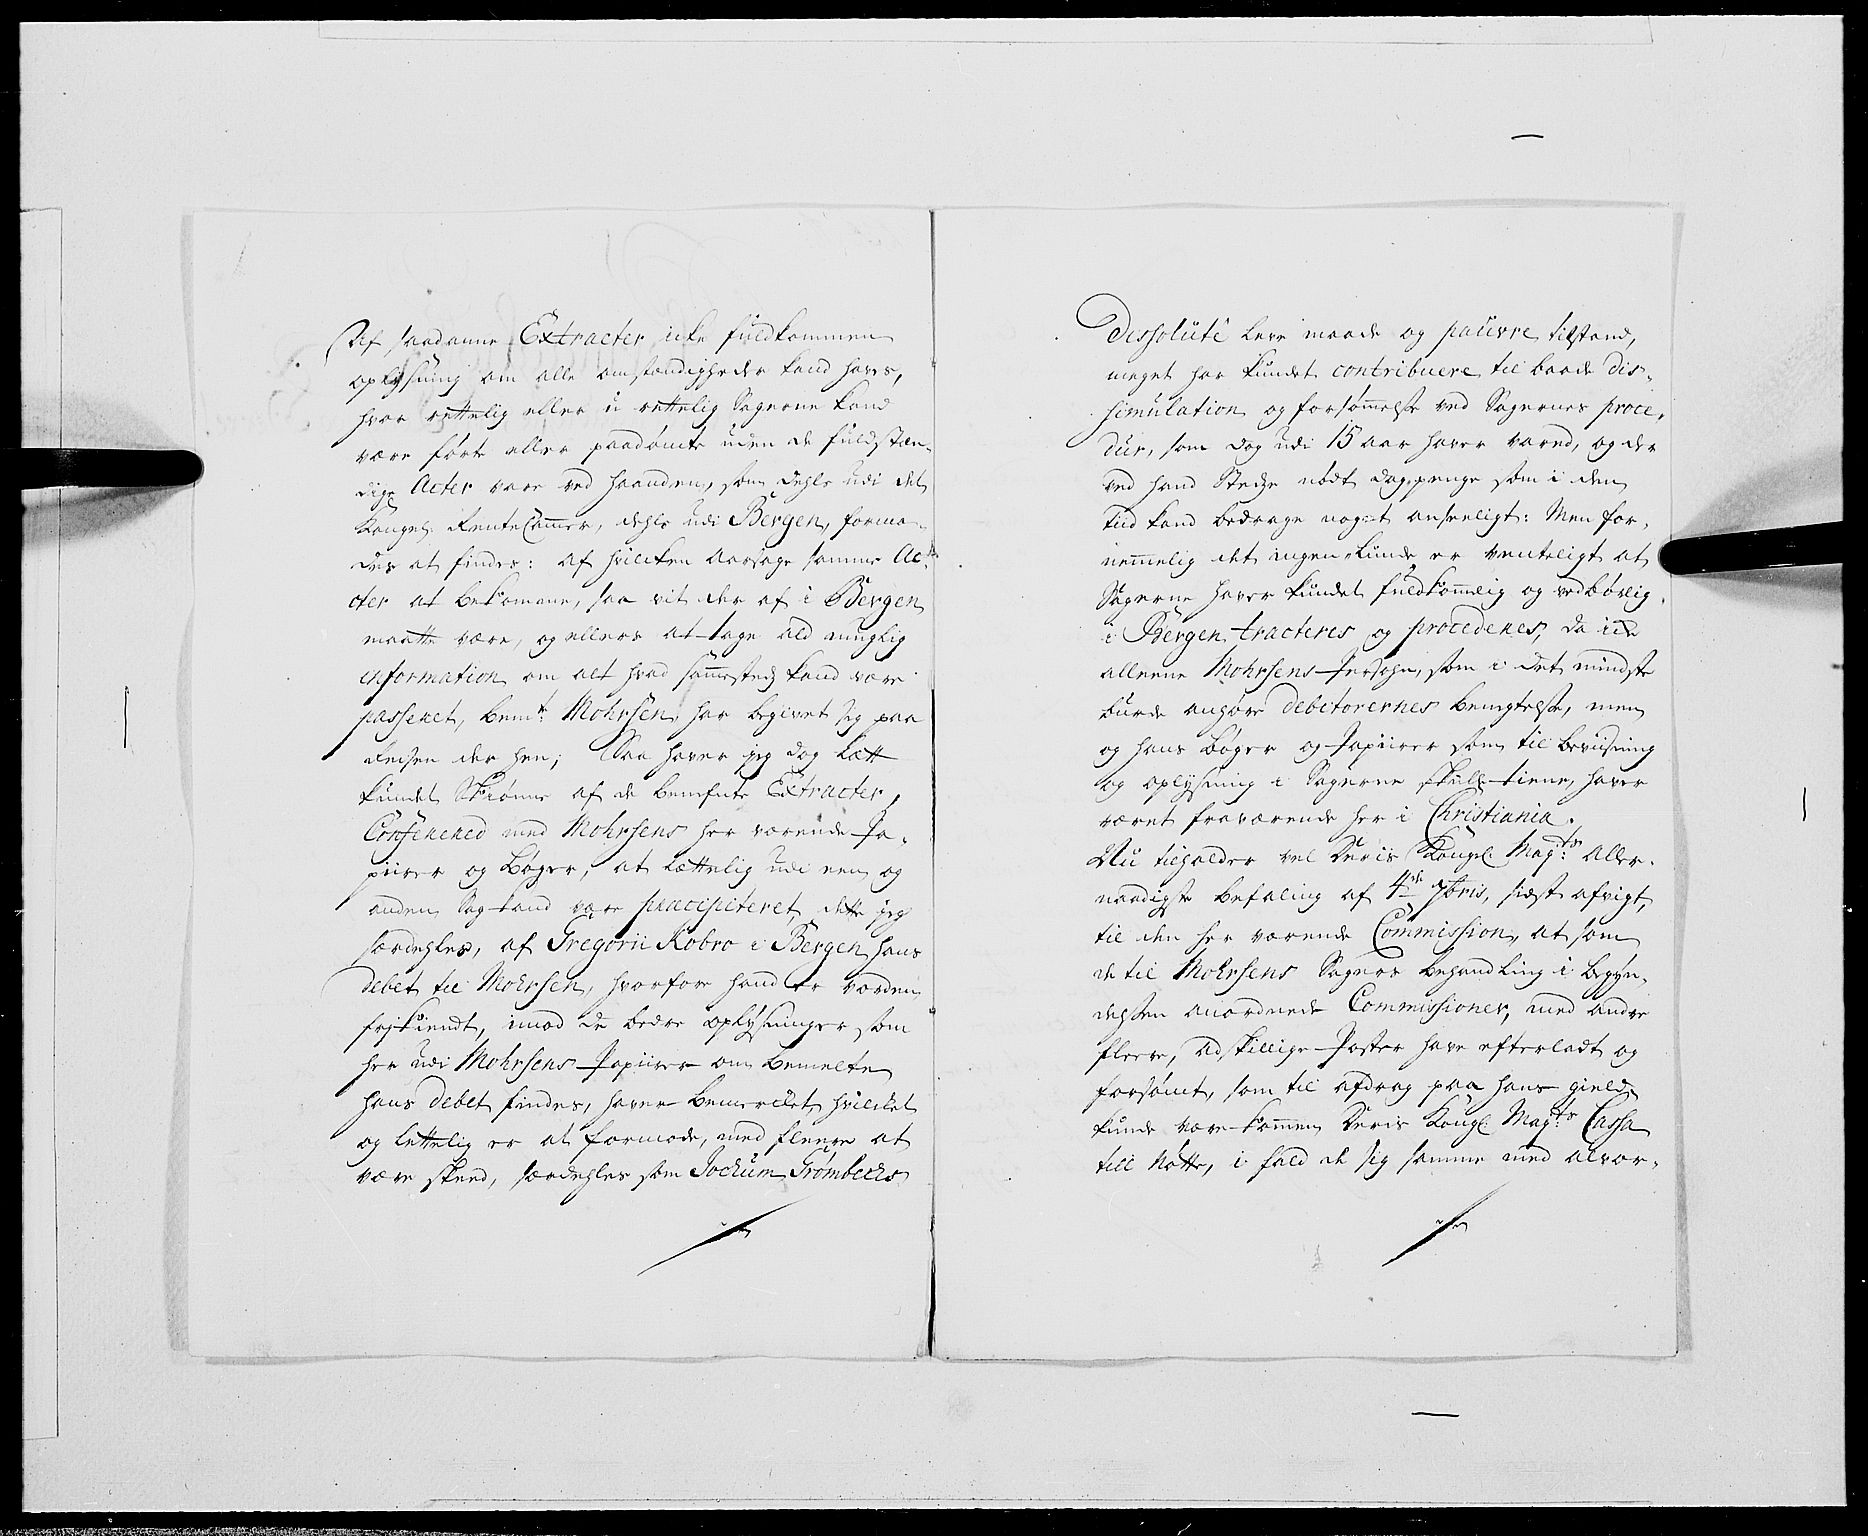 Af saadanne Extracter icke fuldkommen
oplysning om alle omstændigheder kand haves,
hvor rettelig eller u-rettelig Sagerne kand
være førte eller paadømte uden de fuldstæn-
dige Acter vare ved haanden, som dehls udi det
Kongel. RenteCammer, dehls udi Bergen, forma-
des at findes: af hvilcken Aarsage samme Ac-
cter at bekomme, saa vit der af i Bergen
maatte være, og ellers at tage ald muuglig
information om alt hvad sammesteds kand være
passeret, bemte Mohrsen har begivet sig paa
Reisen der hen; Saa haver jeg dog lætt
kundet Skiønne af de benefnte Extracter,
Confereret med Mohrsens her værende Pa-
piirer og Bøger, at lættelig udi een og
anden Sag kand være præcipiteret, dette jeg
særdehles, af Gregorii Kobro i Bergen hans
debet til Mohrsen, hvorfore hand er vorden
frjkiendt, imod de bedre oplysninger som
her udi Mohrsens Papiirer om bemelte
hans debet findes, haver bemercket, hvilcket
og lettelig er at formode, med fleere at
være skeed, særdehles som Jochum Grømbechs
Dissolute leve maade og pauvre tilstand,
meget har kundet contribuere til baade dis-
simulation og forsømmelse ved Sagernes proce-
dur, som dog udi 15 aar haver vared, og der
ved hand Stedze nødt dagpenge som i den
tiid kand bedrage noget anseeligt: Men for-
nemmelig det ingenlunde er venteligt at
Sagerne haver kundet fuldkommelig og vedbørlig
i Bergen tracteres og procederes, da icke
alleene Mohrsens Persohn, som i det mindste
burde anhøre debitorernes benegtelse, men
og hans bøger og Papiirer som til beviisning
og oplysning i Sagerne skulle tiene, haver
været fraværende her i Christiania.
Nu tilholder vel Deris Kongl. Mayts Aller-
naadigste befaling af 4de 7bris, sidst afvigt,
til den her værende Commission, at som
de til Mohrsens Sagers behandling i begyn-
delsen anordnede Commissioner, med andre
fleere, adskillige Poster have efterladt og
forsømt, som til afdrag paa hans gield
kunde være kommen Deris Kongl. Mayts Cassa
till Notte, i fald de sig samme med alvor-